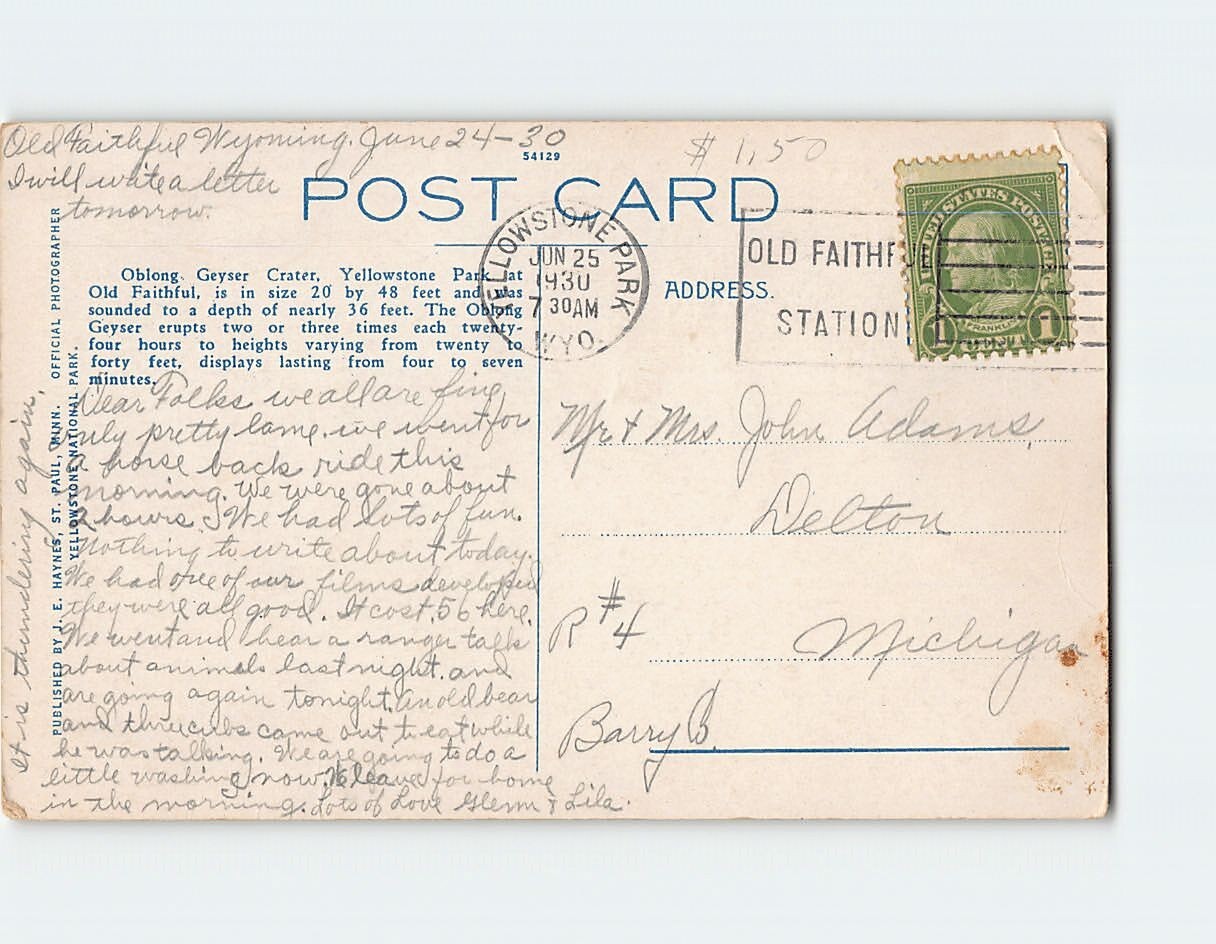 Old Faithful Wyoming. June 24-30
I will write a letter
tomorrow.
54129
$ 1.50
POST CARD
Oblong Geyser Crater, Yellowstone Park, at
Old Faithful, is in size 20 by 48 feet and was
sounded to a depth of nearly 36 feet. The Oblong
Geyser erupts two or three times each twenty-
four hours to heights varying from twenty to
forty feet, displays lasting from four to seven
minutes.
YELLOWSTONE PARK
JUN 25
1930
7 30AM
WYO.
ADDRESS.
OLD FAITHFUL
STATION
UNITED STATES POSTAGE
1 FRANKLIN 1
Dear Folks we all are fine
only pretty lame. we went for
a horse back ride this
morning. We were gone about
2 hours. We had lots of fun.
Nothing to write about today.
We had one of our films developed
they were all good. It cost .56 here.
We went and hear a ranger talk
about animals last night. and
are going again tonight. An old bear
and three cubs came out to eat while
he was talking. We are going to do a
little washing now. We leave for home
in the morning. Lots of Love Glenn & Lila.
It is thundering again.
PUBLISHED BY J. E. HAYNES, ST. PAUL, MINN. OFFICIAL PHOTOGRAPHER
YELLOWSTONE NATIONAL PARK.
Mr & Mrs. John Adams,
Delton
R #4
Michigan
Barry